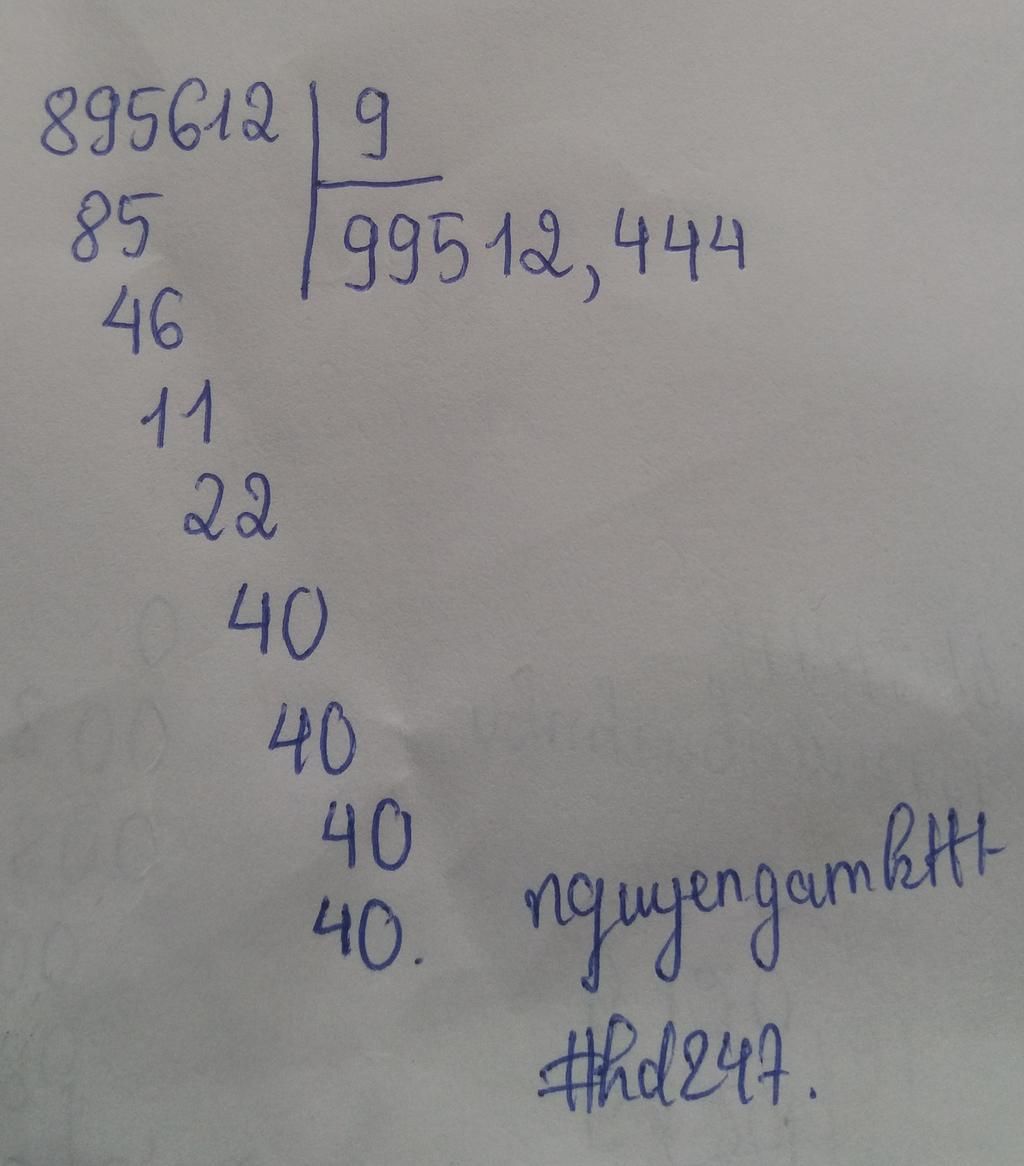 895612 9
85 99512,444
46
11
22
40
40
40
40.
#hd247.